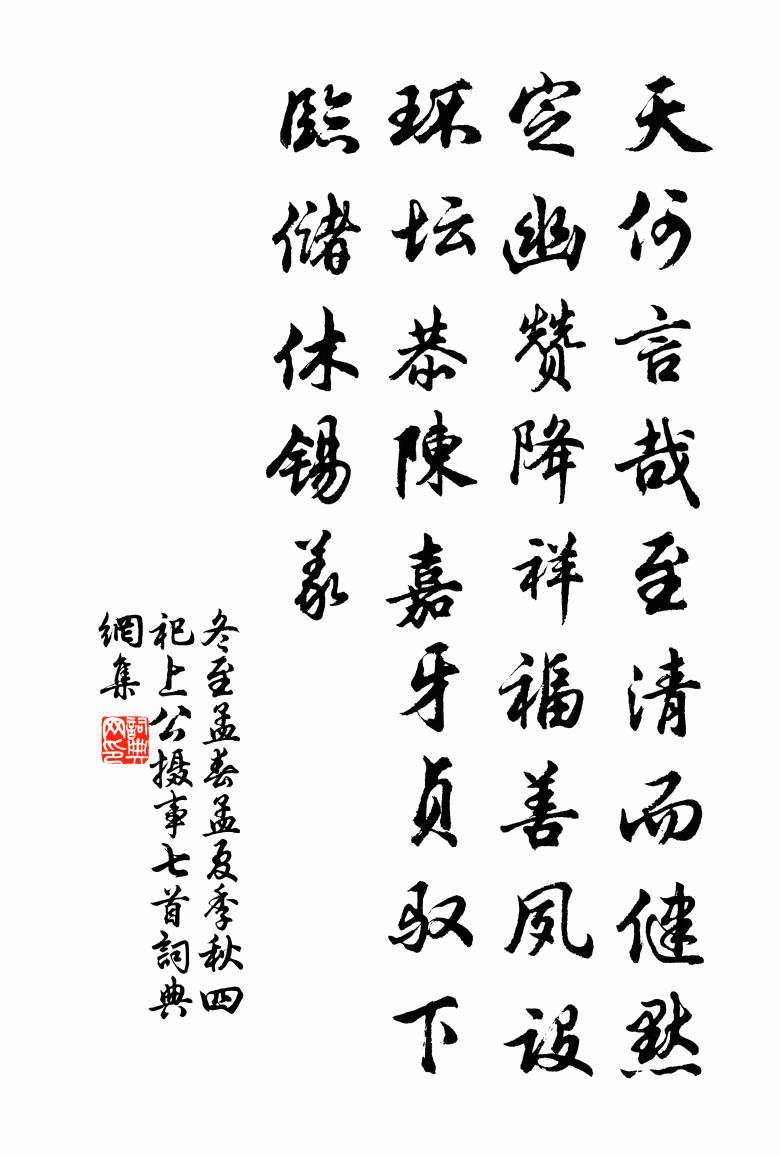 天何言哉至清而健默
定幽赞降祥福善夙设
環坛恭陳嘉牙贞驭下
臨儲休锡羡
冬至孟春孟夏季秋四
祀上公摄事七首詞典
網集
詞典網印